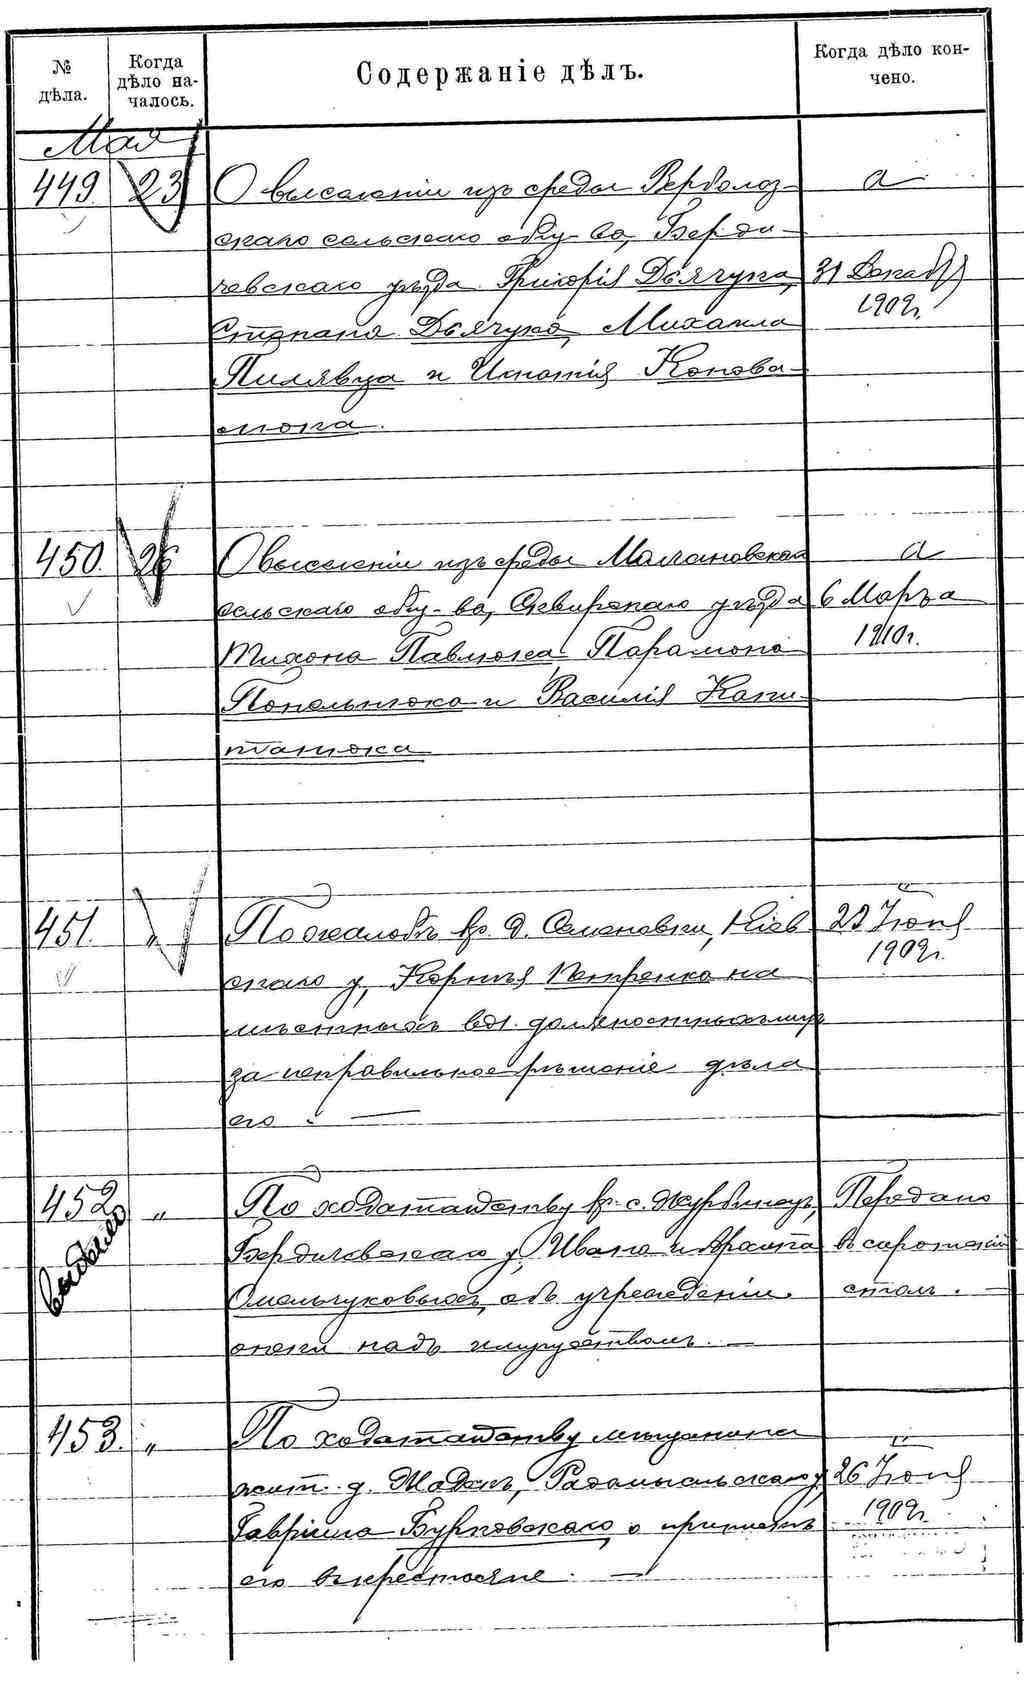 № дѣла.
Когда дѣло началось.
Содержаніе дѣлъ.
Когда дѣло кончено.
Мая
449. 23 О выселеніи изъ среды Верболоз-
скаго сельскаго общ-ва, Берди-
чевскаго уѣзда Григорія Дьячука,
Степана Дьячука, Михаила
Пилявца и Игнатія Конова-
люка.
а
31 Декабря
1909г.
450. 26 О выселеніи изъ среды Молчановскаго
сельскаго общ-ва, Сквирскаго уѣзда
Тихона Павлюка, Парамона
Попельнюка и Василія Капи-
танюка
а
6 Марта
1910г.
451. „ По жалобѣ кр. д. Семеновки, Кіев-
скаго у, Корнѣя Петренко на
мѣстныхъ вол. должностныхъ лицъ
за неправильное рѣшеніе дѣла
его. —
22 Іюня
1909г.
452 „ По ходатайству кр. с. Журбинецъ,
Бердичевскаго у, Ивана и
Омельчуковыхъ, объ учрежденіи
опеки надъ имуществомъ. —
Передано
въ сиротскій
столъ. —
выбыло
453. „ По ходатайству мѣщанина
жит. д. Радомысльскаго у,
Гавріила Бурковскаго о припискѣ
его въ крестьяне. —
26 Іюня
1909г.